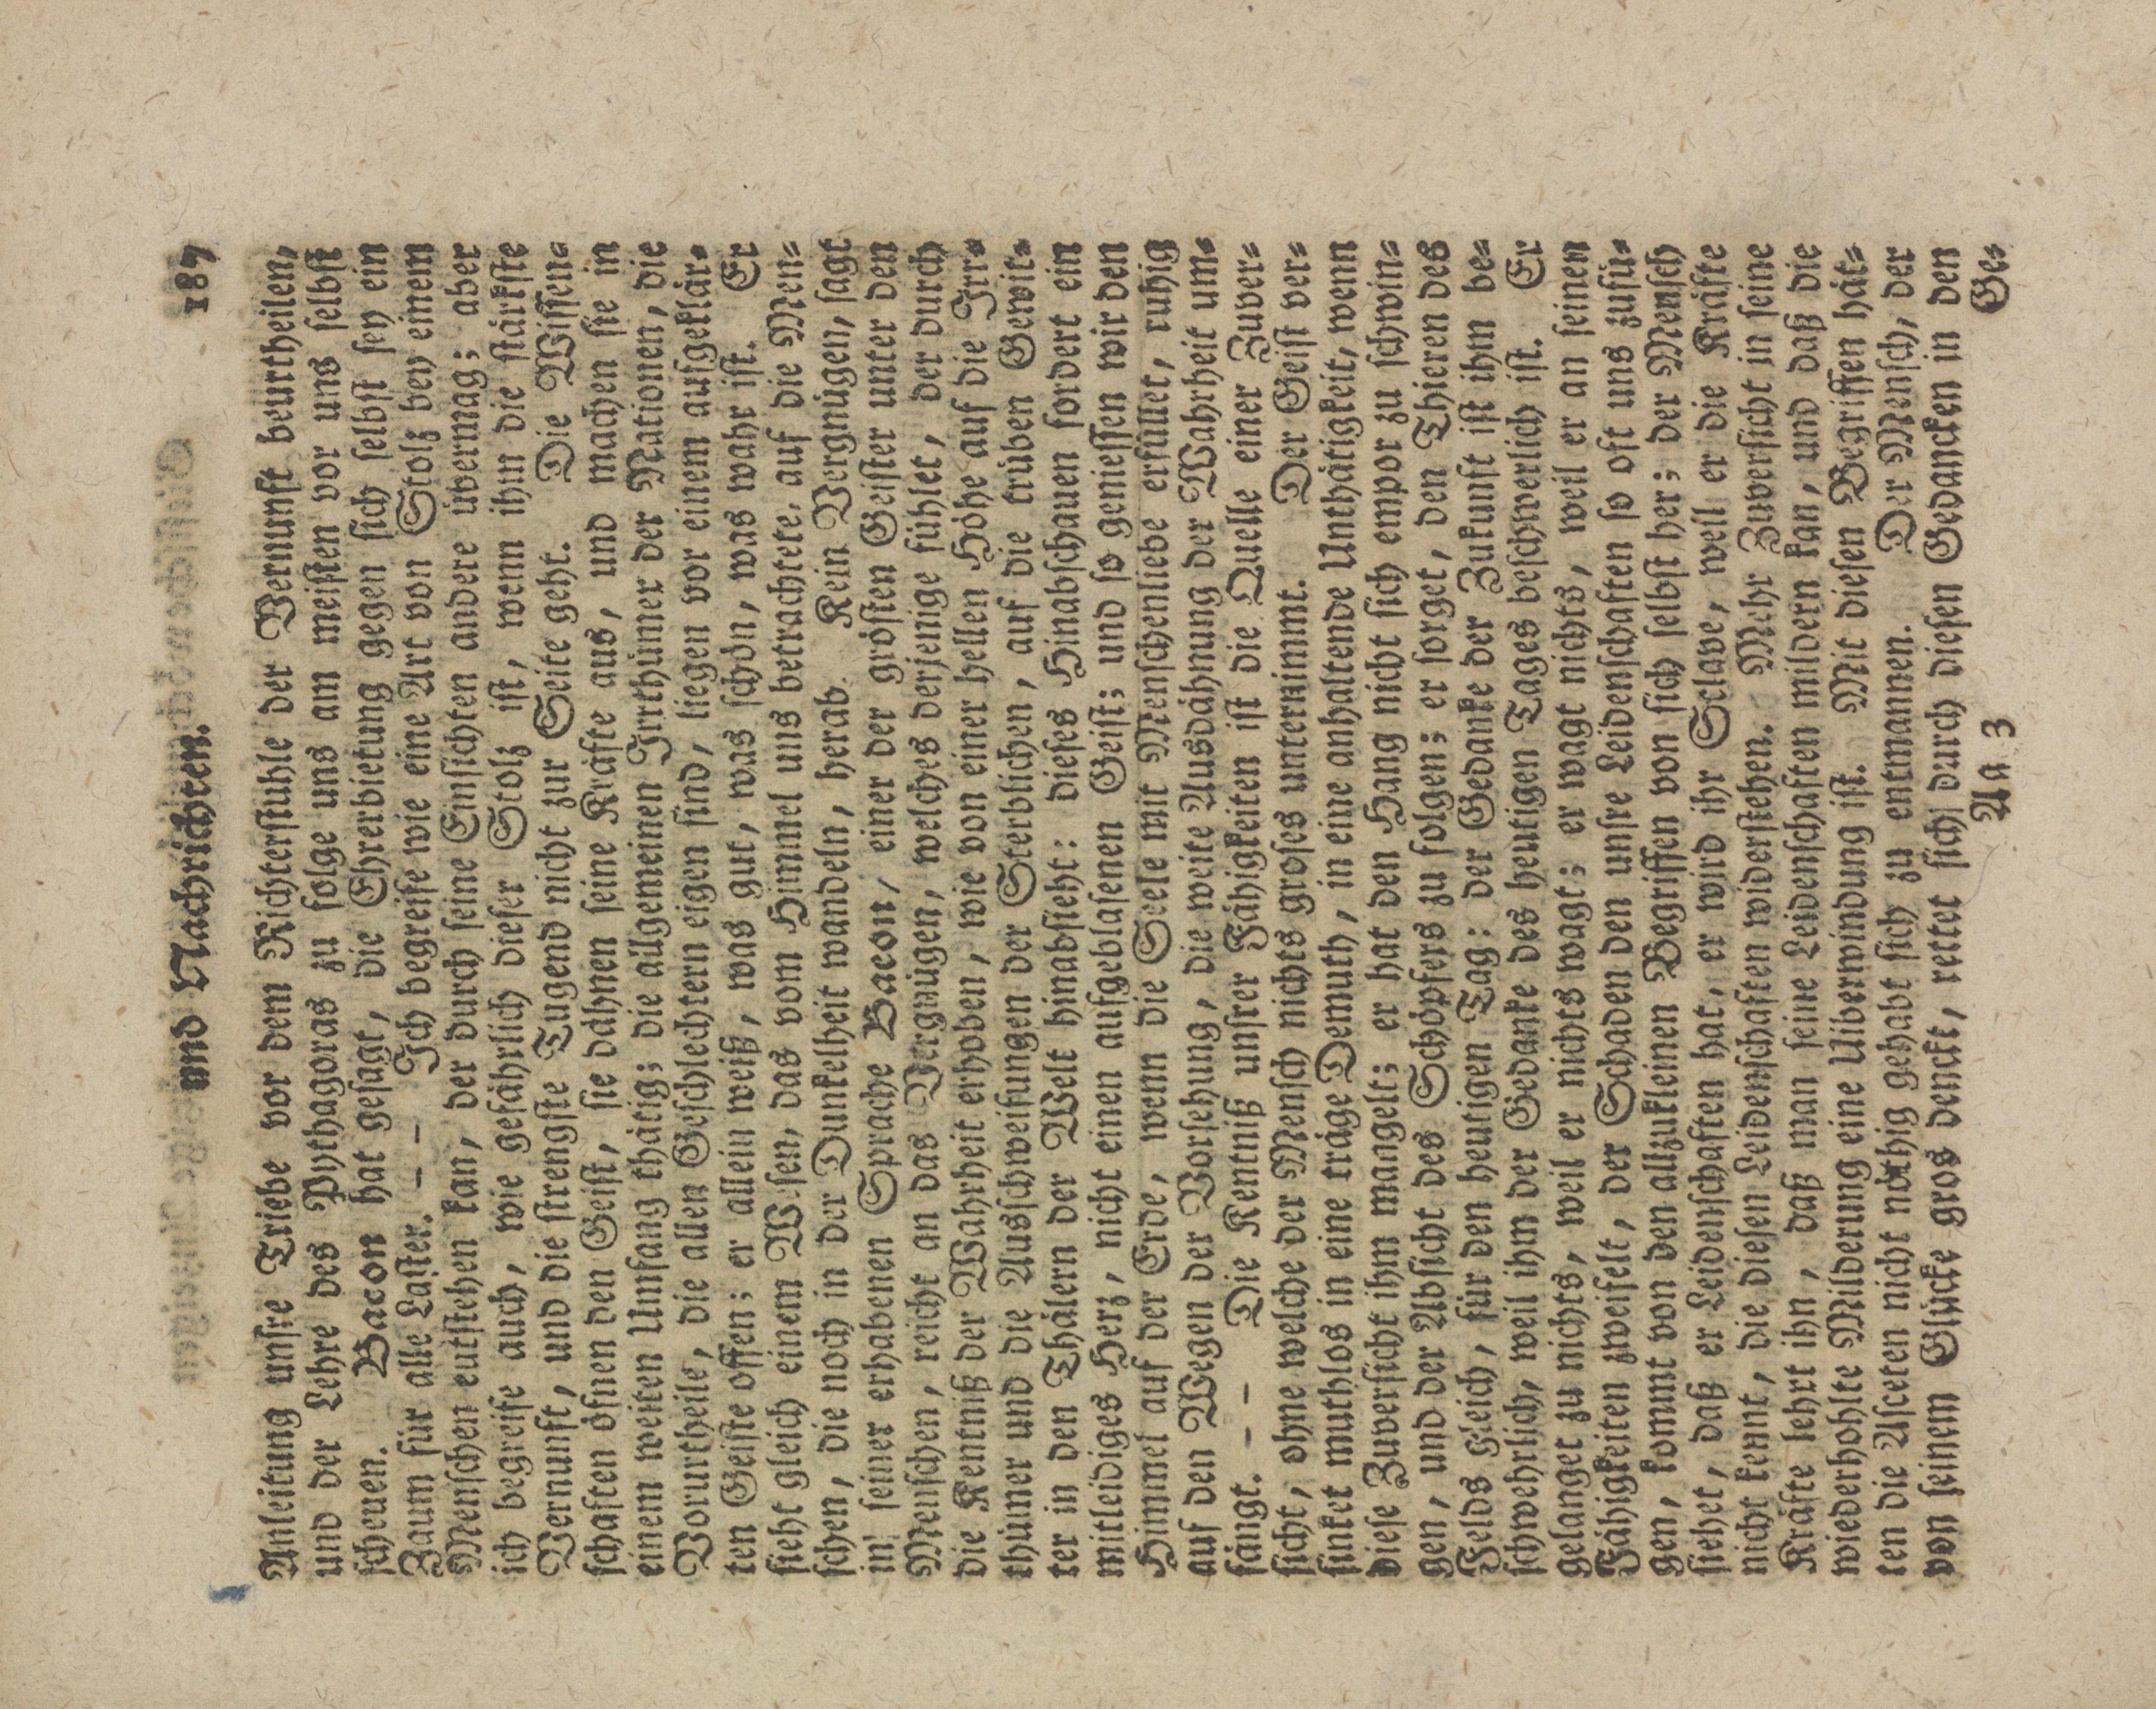 und Nachrichten. 187
Anleitung unsre Triebe vor dem Richterstuhle der Vernunft beurtheilen,
und der Lehre des Pythagoras zu folge uns am meisten vor uns selbst
scheuen. Bacon hat gesagt, die Ehrerbietung gegen sich selbst sey ein
Zaum für alle Laster. – – Ich begreife wie eine Art von Stolz bey einem
Menschen entstehen kan, der durch seine Einsichten andere übermag; aber
ich begreife auch, wie gefährlich dieser Stolz ist, wenn ihm die stärkste
Vernunft, und die strengste Tugend nicht zur Seite geht. Die Wissen⸗
schaften öfnen den Geist, sie dähnen seine Kräfte aus, und machen sie in
einem weiten Umfang thätig; die allgemeinen Irrthümer der Nationen, die
Vorurtheile, die allen Geschlechtern eigen sind, liegen vor einem aufgeklär⸗
ten Geiste offen; er allein weiß, was gut, was schön, was wahr ist. Er
sieht gleich einem Wesen, das vom Himmel uns betrachtete, auf die Men⸗
schen, die noch in der Dunkelheit wandeln, herab. Kein Vergnügen, sagt
in seiner erhabenen Sprache Bacon, einer der grösten Geister unter den
Menschen, reicht an das Vergnügen, welches derjenige fühlet, der durch
die Kentniß der Wahrheit erhoben, wie von einer hellen Höhe auf die Irr⸗
thümer und die Ausschweifungen der Sterblichen, auf die trüben Gewit⸗
ter in den Thälern der Welt hinabsieht: dieses Hinabschauen fordert ein
mitleidiges Herz, nicht einen aufgeblasenen Geist; und so geniessen wir den
Himmel auf der Erde, wenn die Seele mit Menschenliebe erfüllet, ruhig
auf den Wegen der Vorsehung, die weite Ausdähnung der Wahrheit um⸗
fängt. – – Die Kentniß unsrer Fähigkeiten ist die Quelle einer Zuver⸗
sicht, ohne welche der Mensch nichts groses unternimmt. Der Geist ver⸗
sinket muthlos in eine träge Demuth, in eine anhaltende Unthätigkeit, wenn
diese Zuversicht ihm mangelt; er hat den Hang nicht sich empor zu schwin⸗
gen, und der Absicht des Schöpfers zu folgen; er sorget, den Thieren des
Felds gleich, für den heutigen Tag: der Gedanke der Zukunft ist ihm be⸗
schwehrlich, weil ihm der Gedanke des heutigen Tages beschwerlich ist. Er
gelanget zu nichts, weil er nichts wagt; er wagt nichts, weil er an seinen
Fähigkeiten zweifelt, der Schaden den unsre Leidenschaften so oft uns zufü⸗
gen, kommt von den allzukleinen Begriffen von sich selbst her; der Mensch
siehet, daß er Leidenschaften hat, er wird ihr Sclave, weil er die Kräfte
nicht kennt, die diesen Leidenschaften widerstehen. Mehr Zuversicht in seine
Kräfte lehrt ihn, daß man seine Leidenschaften mildern kan, und daß die
wiederhohlte Milderung eine Uiberwindung ist. Mit diesen Begriffen hät⸗
ten die Asceten nicht nöthig gehabt sich zu entmannen. Der Mensch, der
von seinem Glücke gros denckt, rettet sich durch diesen Gedancken in den
Aa 3 Ge⸗